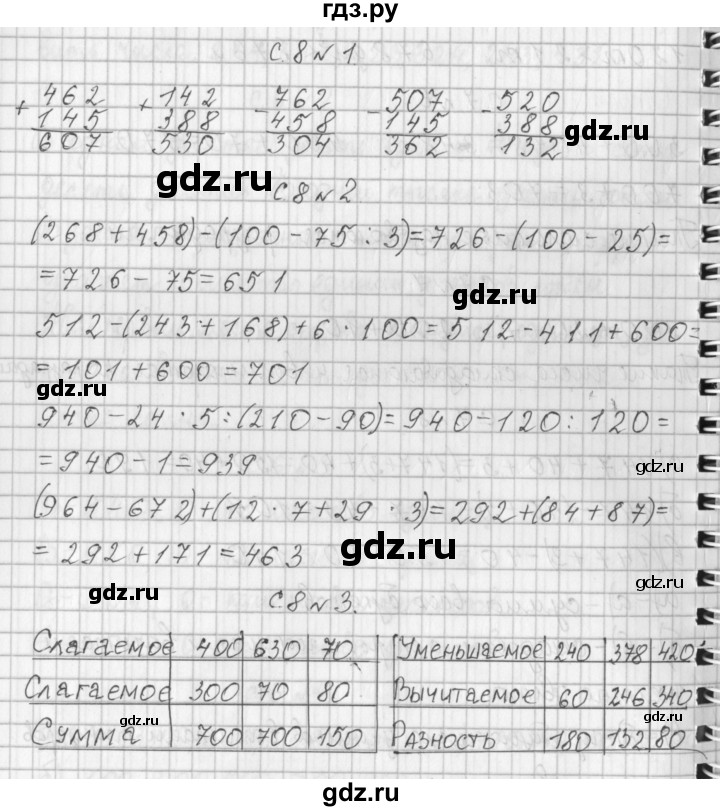 гдз.ру
С. 8 № 1
+ 462 + 142 - 762 - 507 - 520
145 388 458 145 388
607 530 304 362 132
gdz.ru
gdz.ru
gdz.ru
С. 8 № 2
(268 + 458) - (100 - 75 : 3) = 726 - (100 - 25) =
= 726 - 75 = 651
gdz.ru
512 - (243 + 168) + 6 · 100 = 512 - 411 + 600 =
= 101 + 600 = 701
gdz.ru
940 - 24 · 5 : (210 - 90) = 940 - 120 : 120 =
= 940 - 1 = 939
gdz.ru
(964 - 672) + (12 · 7 + 29 · 3) = 292 + (84 + 87) =
= 292 + 171 = 463
gdz.ru
gdz.ru
С. 8 № 3.
Слагаемое 400 630 70 Уменьшаемое 240 378 420
Слагаемое 300 70 80 Вычитаемое 60 246 340
gdz.ru
gdz.ru
Сумма 700 700 150 Разность 180 132 80
gdz.ru
gdz.ru